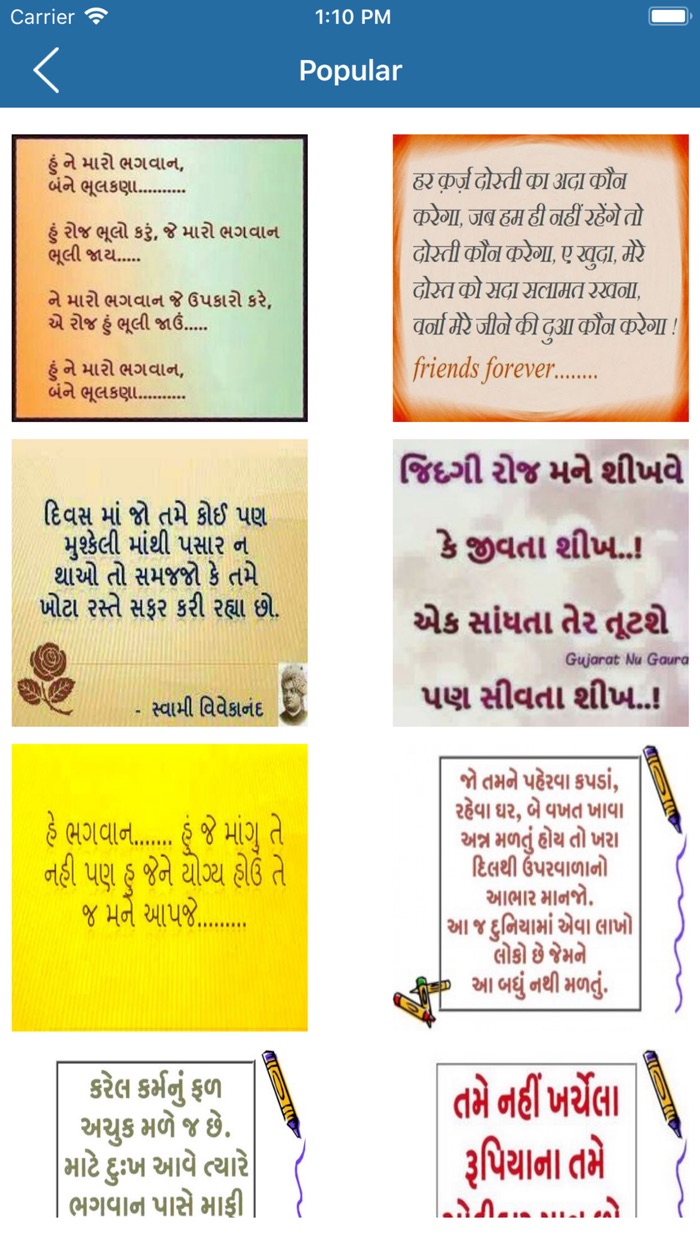 Carrier
1:10 PM
Popular
હું ને મારો ભગવાન,
બંને ભૂલકણા..........
હું રોજ ભૂલો કરું, જે મારો ભગવાન
ભૂલી જાય.....
ને મારો ભગવાન જે ઉપકારો કરે,
એ રોજ હું ભૂલી જાઉં.....
હું ને મારો ભગવાન,
બંને ભૂલકણા..........
हर क़र्ज़ दोस्ती का अदा कौन
करेगा, जब हम ही नहीं रहेंगे तो
दोस्ती कौन करेगा, ए खुदा, मेरे
दोस्त को सदा सलामत रखना,
वर्ना मेरे जीने की दुआ कौन करेगा !
friends forever........
દિવસ માં જો તમે કોઈ પણ
મુશ્કેલી માંથી પસાર ન
થાઓ તો સમજજો કે તમે
ખોટા રસ્તે સફર કરી રહ્યા છો.
- સ્વામી વિવેકાનંદ
જિંદગી રોજ મને શીખવે
કે જીવતા શીખ..!
એક સાંધતા તેર તૂટશે
Gujarat Nu Gaura
પણ સીવતા શીખ..!
હે ભગવાન....... હું જે માંગુ તે
નહી પણ હુ જેને યોગ્ય હોઉં તે
જ મને આપજે.........
જો તમને પહેરવા કપડાં,
રહેવા ઘર, બે વખત ખાવા
અન્ન મળતું હોય તો ખરા
દિલથી ઉપરવાળાનો
આભાર માનજો.
આ જ દુનિયામાં એવા લાખો
લોકો છે જેમને
આ બધું નથી મળતું.
કરેલ કર્મનું ફળ
અચુક મળે જ છે.
માટે દુઃખ આવે ત્યારે
ભગવાન પાસે માફી
તમે નહીં ખર્ચેલા
રૂપિયાના તમે